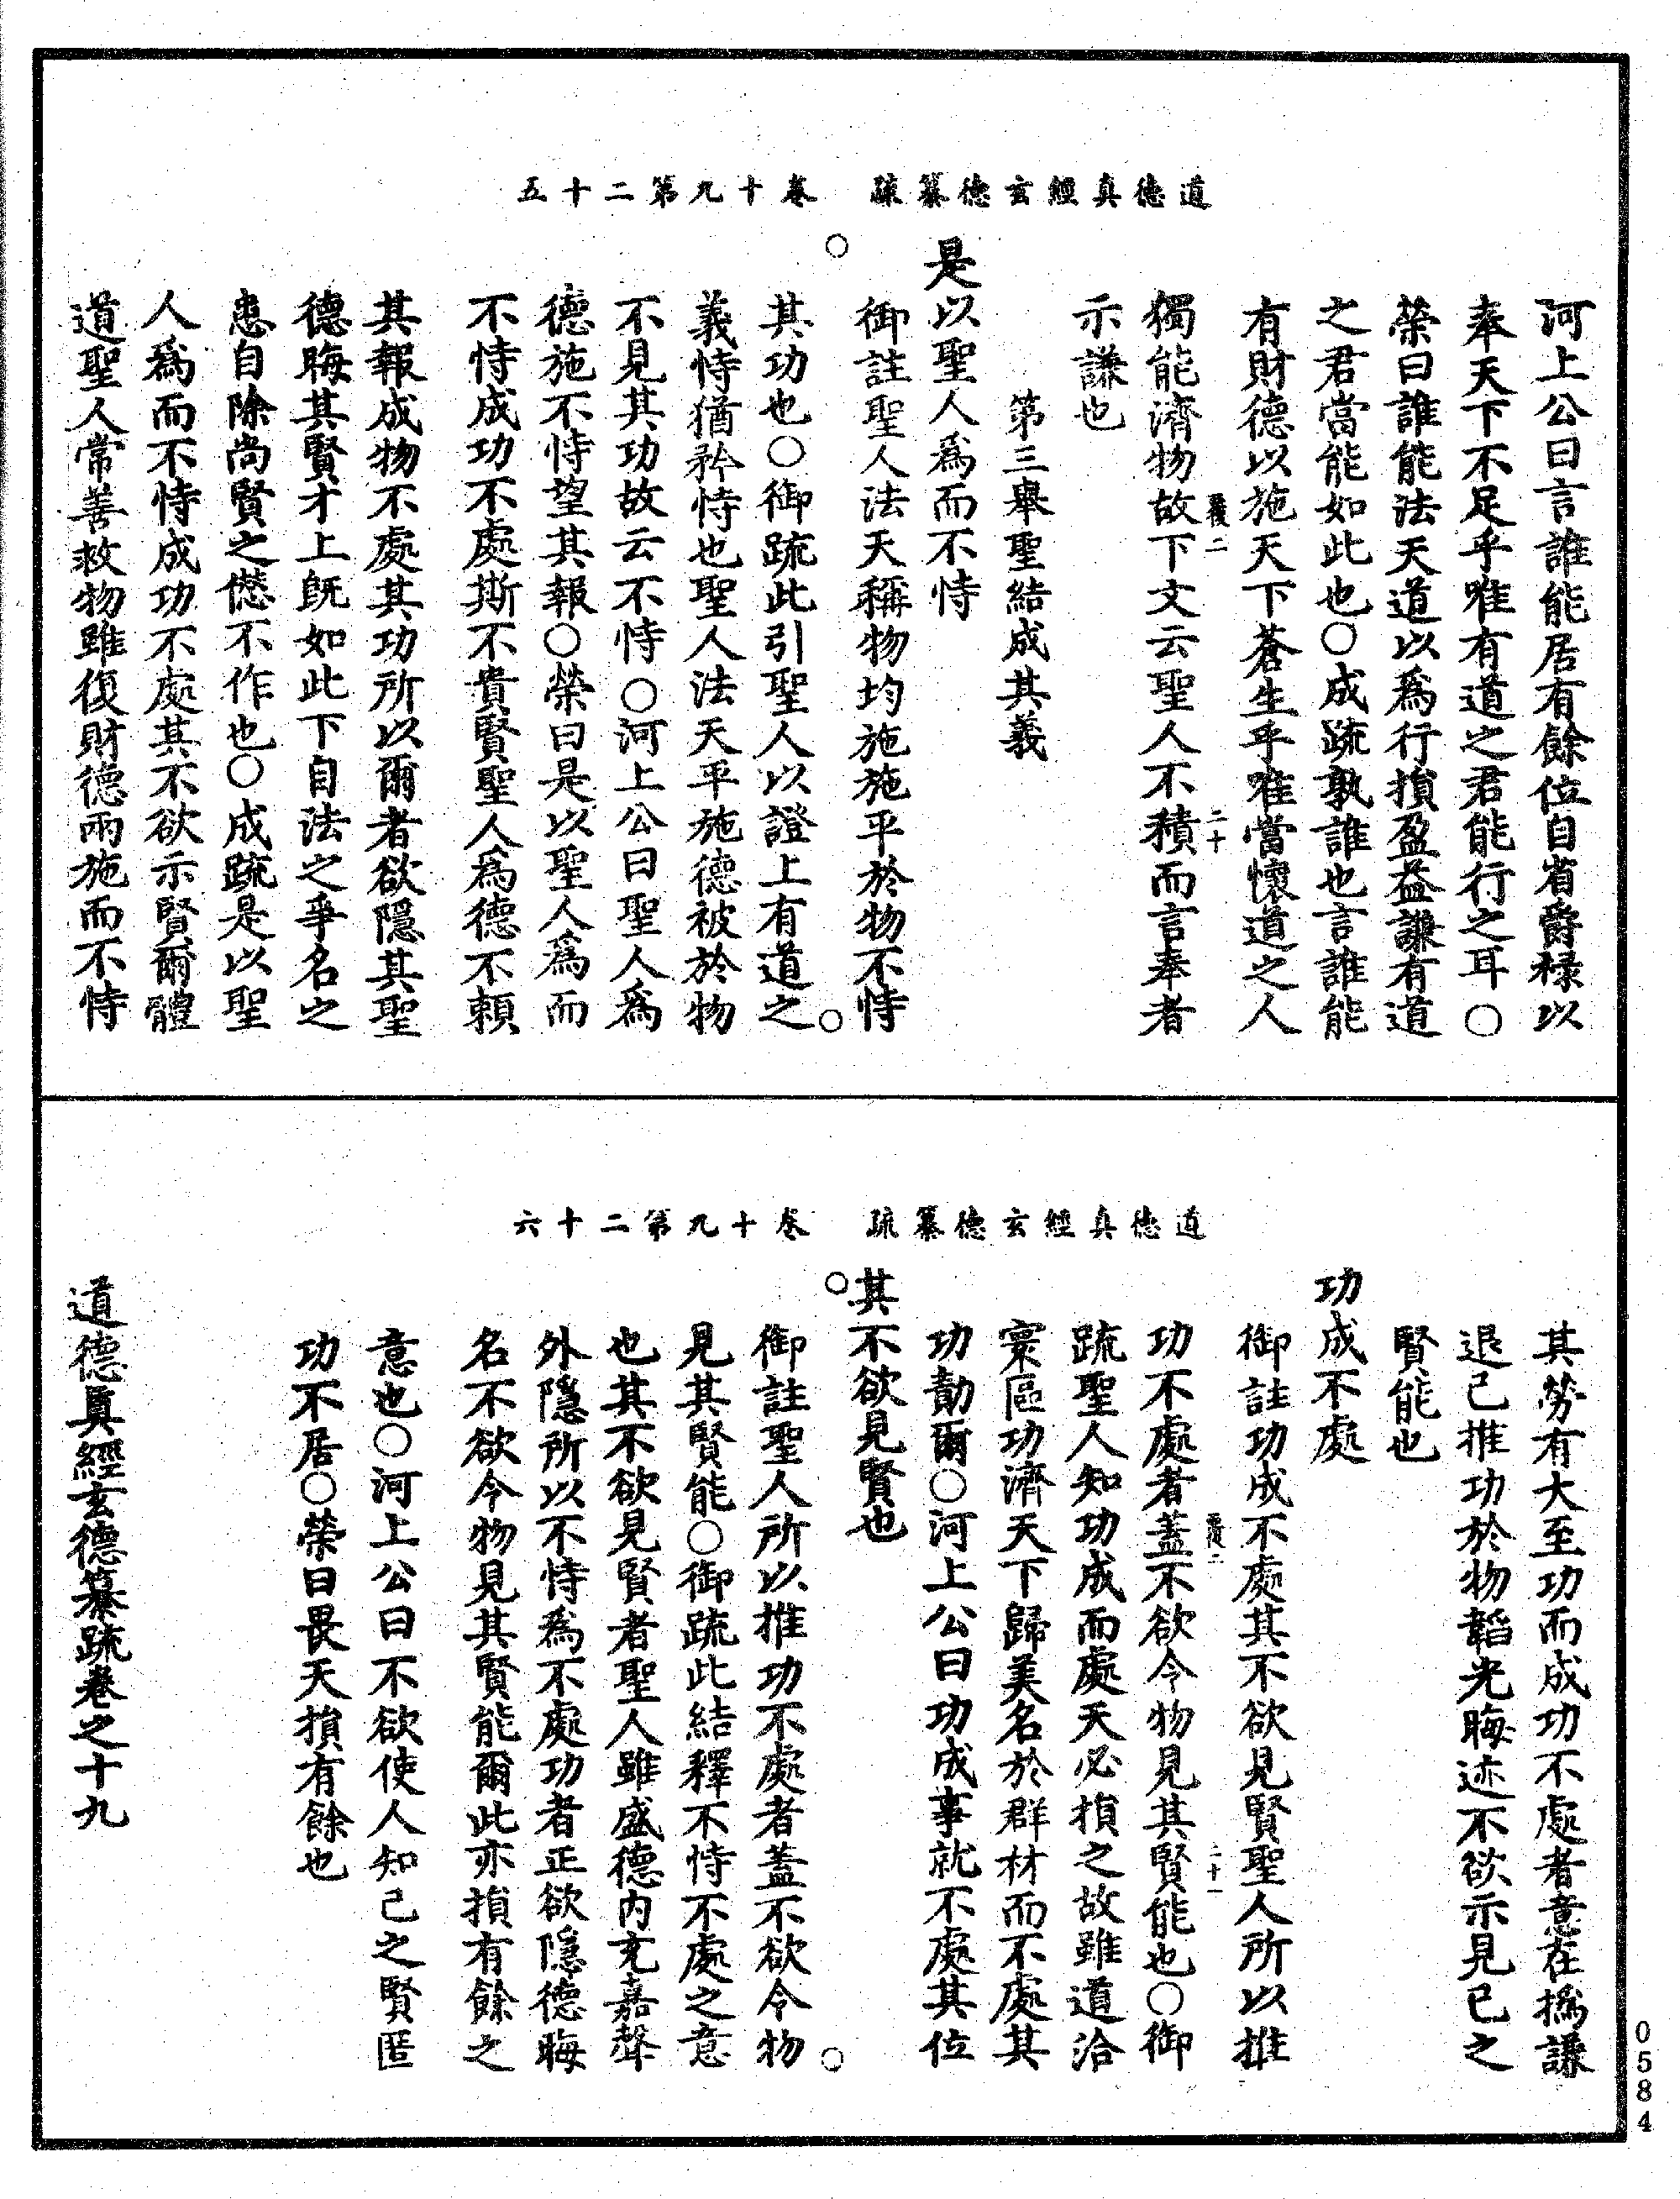 道德真經玄德纂疏　卷十九第二十五
河上公曰言誰能居有餘位自省爵祿以
奉天下不足乎唯有道之君能行之耳○
榮曰誰能法天道以為行損盈益謙有道
之君當能如此也○成疏孰誰也言誰能
有財德以施天下蒼生乎唯當懷道之人
二十
獨能濟物故下文云聖人不積而言奉者
示謙也
第三舉聖結成其義
是以聖人為而不恃
御註聖人法天稱物均施施平於物不恃
其功也○御疏此引聖人以證上有道之
義恃猶矜恃也聖人法天平施德被於物
不見其功故云不恃○河上公曰聖人為
德施不恃望其報○榮曰是以聖人為而
不恃成功不處斯不貴賢聖人為德不賴
其報成物不處其功所以爾者欲隱其聖
德晦其賢才上既如此下自法之爭名之
患自除尚賢之僁不作也○成疏是以聖
人為而不恃成功不處其不欲示賢爾體
道聖人常善救物雖復財德兩施而不恃
道德真經玄德纂疏　卷十九第二十六
其勞有大至功而成功不處者意在撝謙
退己推功於物韜光晦迹不欲示見己之
賢能也
功成不處
御註功成不處其不欲見賢聖人所以推
二十一
功不處者蓋不欲令物見其賢能也○御
疏聖人知功成而處天必損之故雖道洽
寰區功濟天下歸美名於群材而不處其
功勣爾○河上公曰功成事就不處其位
其不欲見賢也
御註聖人所以推功不處者蓋不欲令物
見其賢能○御疏此結釋不恃不處之意
也其不欲見賢者聖人雖盛德內充嘉聲
外隱所以不恃為不處功者正欲隱德晦
名不欲令物見其賢能爾此亦損有餘之
意也○河上公曰不欲使人知己之賢匿
功不居○榮曰畏天損有餘也
道德真經玄德纂疏卷之十九
0584